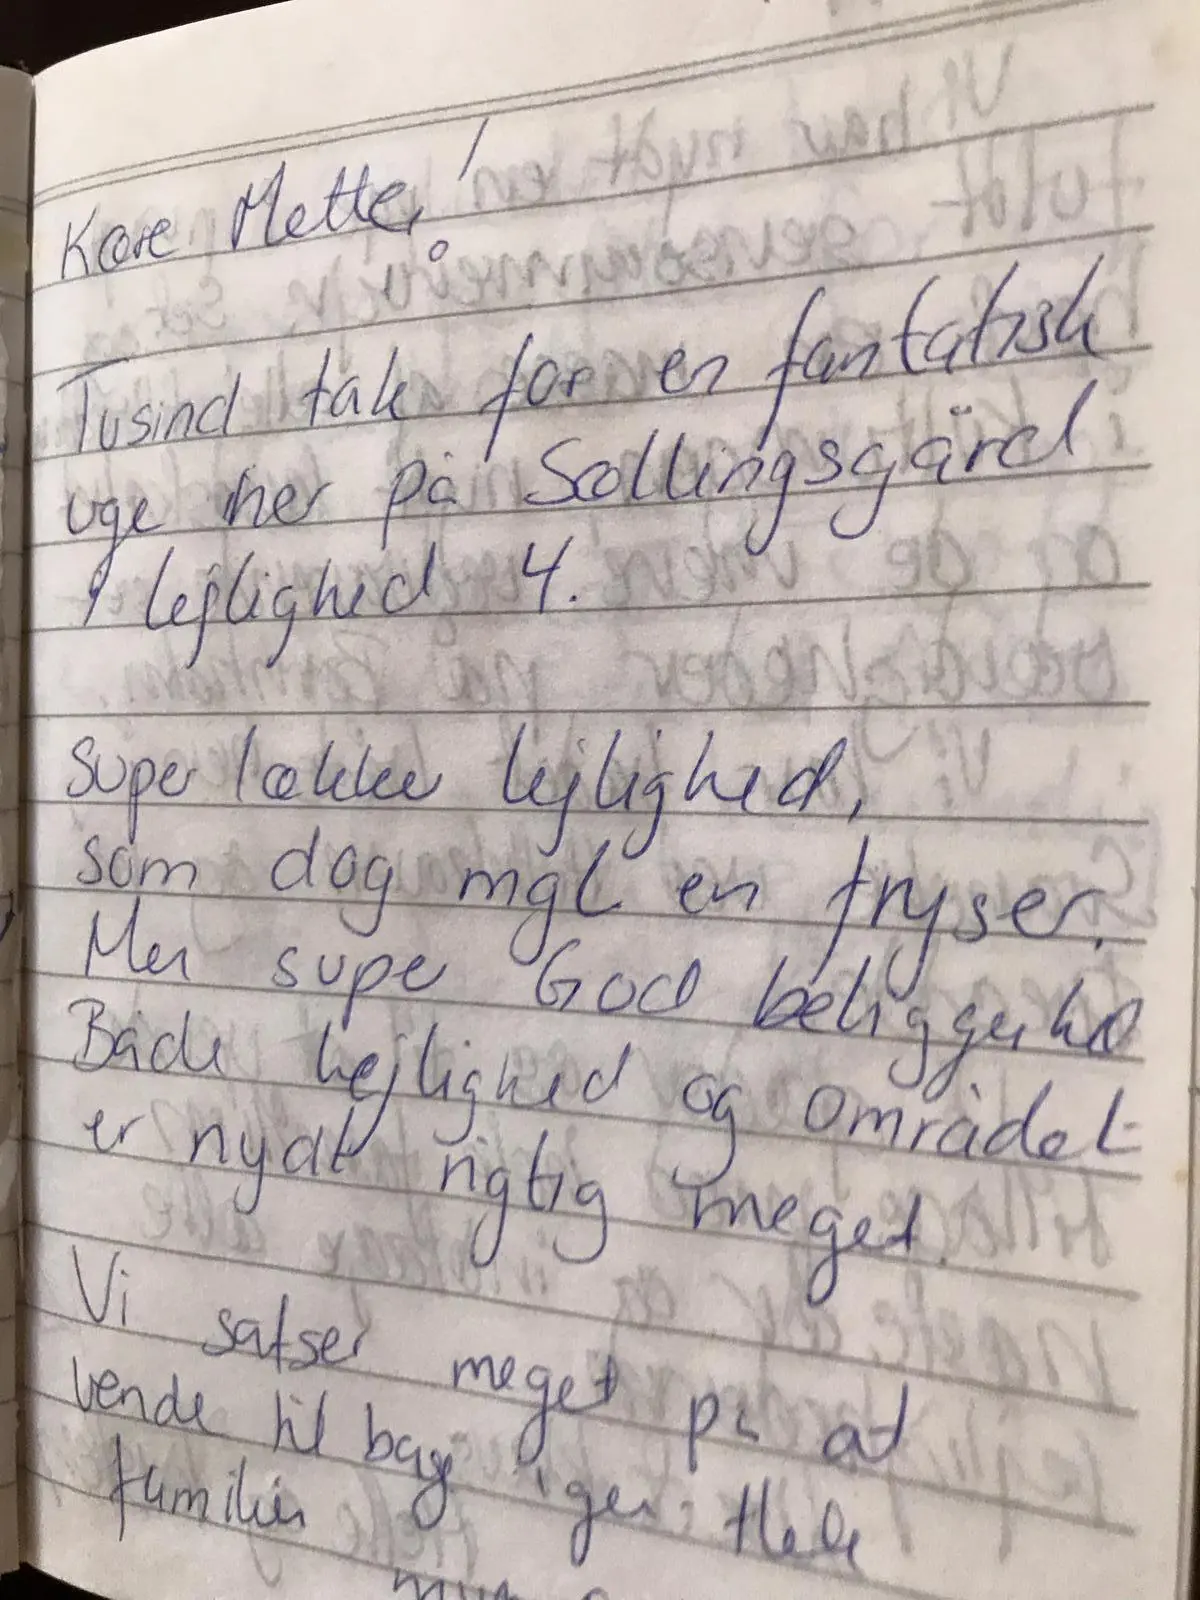 Kære Mette!
Tusind tak for en fantatisk
uge her på Søllingsgård
i lejlighed 4.
Super lækker lejlighed,
som dog mgl en fryser.
Men supe God beliggenhed
Både lejlighed og området
er nydt rigtig meget.
Vi satser meget på at
vende til bage igen. Hele
familien